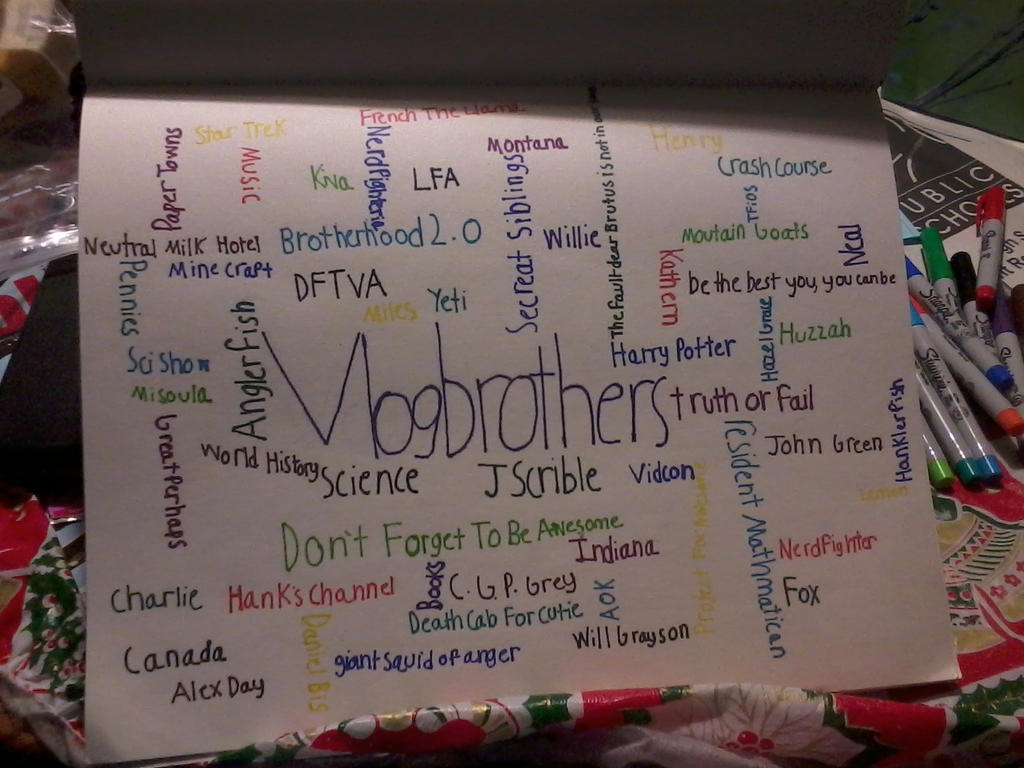 French The Llama
Star Trek
Paper Towns
Music
Nerdfighteria
Montana
Henry
Crash Course
Kiva
LFA
Secreat Siblings
The fault dear Brutus is not in our
TFiOS
Neutral Milk Hotel
Brotherhood 2.0
Willie
Moutain Goats
Neal
Minecraft
Pennies
DFTVA
Kathern
be the best you, you can be
Miles
Yeti
AnglerFish
Hazel Grace
Huzzah
SciShow
Harry Potter
Misoula
Vlogbrothers
truth or Fail
Hanklerfish
Great Perhaps
World History
Science
JScrible
Vidcon
resident Mathmatican
John Green
Lemon
Don't Forget To Be Awesome
Indiana
Nerdfighter
Charlie
Hank's Channel
Books
C.G.P. Grey
AOK
Fox
Death Cab For Cutie
Will Grayson
Canada
Daniel Bis
giant squid of anger
Alex Day
UBLIC
CHOOLS
Sharpie